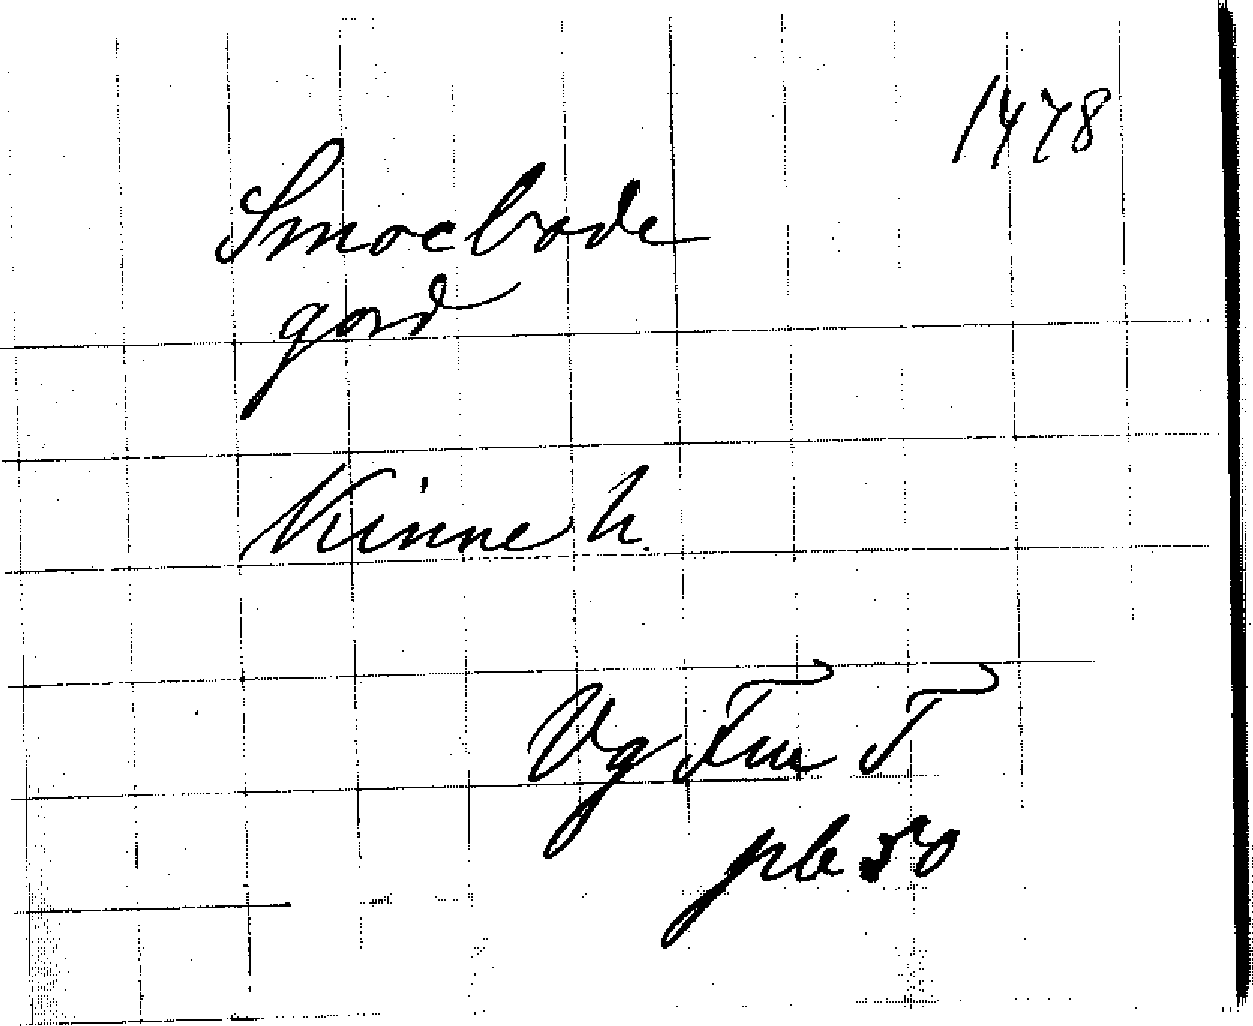 1478
Smoebode
gord
Kinne h.
Vg Fru T
pb 50